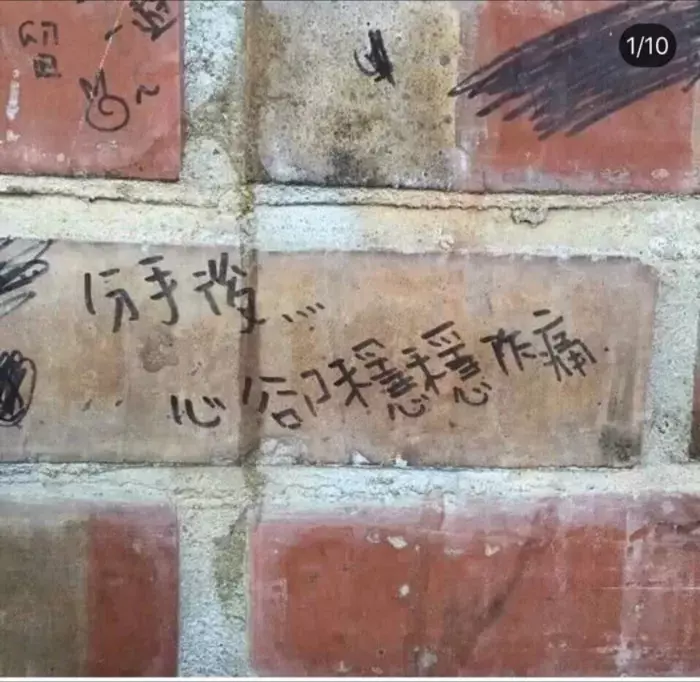 1/10
分手後...
心卻穩穩作痛.